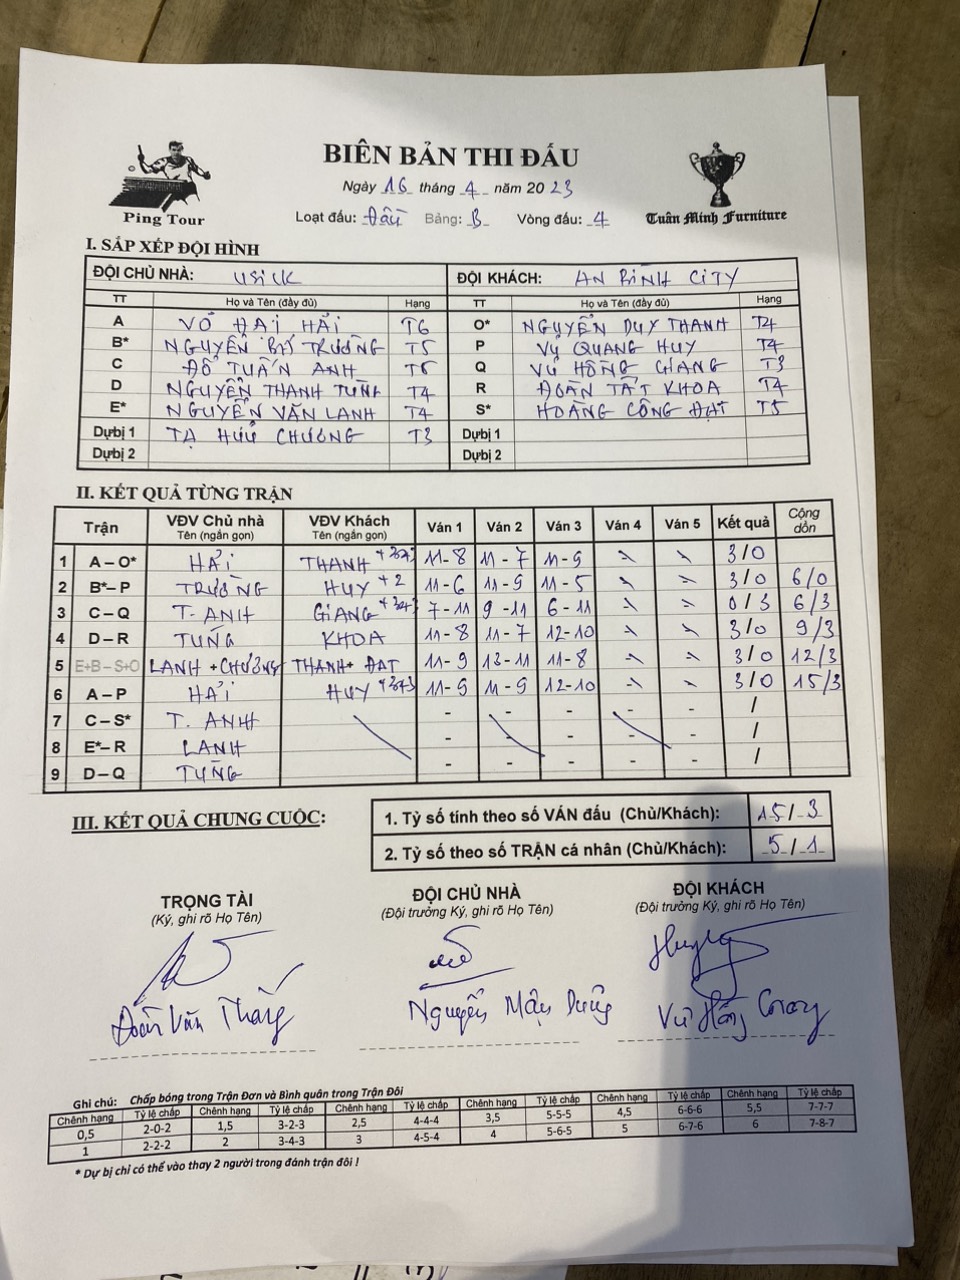 BIÊN BẢN THI ĐẤU
Ping Tour
Tuân Minh Furniture
Ngày 16 tháng 4 năm 2023
Loạt đấu: Đầu Bảng: B Vòng đấu: 4
I. SẮP XẾP ĐỘI HÌNH
ĐỘI CHỦ NHÀ: USICK ĐỘI KHÁCH: AN BÌNH CITY
TT Họ và Tên (đầy đủ) Hạng TT Họ và Tên (đầy đủ) Hạng
A VÕ HẢI T6 O* NGUYỄN DUY THANH T4
B* NGUYỄN BÁ TRƯỜNG T5 P VŨ QUANG HUY T4
C ĐỖ TUẤN ANH Q VŨ HỒNG GIANG T3
D NGUYỄN THANH TÙNG T4 R ĐOÀN TẤT KHOA T4
E* NGUYỄN VĂN LANH T4 S* HOÀNG CÔNG ĐẠT T5
Dự bị 1 TẠ HỮU CHƯƠNG T3 Dự bị 1
Dự bị 2 Dự bị 2
II. KẾT QUẢ TỪNG TRẬN
Trận VĐV Chủ nhà Tên (ngắn gọn) VĐV Khách Tên (ngắn gọn) Ván 1 Ván 2 Ván 3 Ván 4 Ván 5 Kết quả Cộng dồn
1 A – O* HẢI THANH 11-8 11-7 11-9 3/0
2 B* – P TRƯỜNG HUY +2 11-6 11-9 11-5 3/0 6/0
3 C – Q T. ANH GIANG 7-11 9-11 6-11 0/3 6/3
4 D – R TÙNG KHOA 11-8 11-7 12-10 3/0 9/3
5 E+B – S+O LANH + CHƯƠNG THANH + ĐẠT 11-9 13-11 11-8 3/0 12/3
6 A – P HẢI HUY 11-9 11-9 12-10 3/0 15/3
7 C – S* T. ANH - - - - - /
8 E* – R LANH - - - - - /
9 D – Q TÙNG - - - - - /
III. KẾT QUẢ CHUNG CUỘC:
1. Tỷ số tính theo số VÁN đấu (Chủ/Khách): 15/3
2. Tỷ số theo số TRẬN cá nhân (Chủ/Khách): 5/1
TRỌNG TÀI ĐỘI CHỦ NHÀ ĐỘI KHÁCH
(Ký, ghi rõ Họ Tên) (Đội trưởng Ký, ghi rõ Họ Tên) (Đội trưởng Ký, ghi rõ Họ Tên)
Đoàn Văn Thắng Nguyễn Mậu Dũng Vũ Hồng Giang
Ghi chú: Chấp bóng trong Trận Đơn và Bình quân trong Trận Đôi
Chênh hạng Tỷ lệ chấp Chênh hạng Tỷ lệ chấp Chênh hạng Tỷ lệ chấp Chênh hạng Tỷ lệ chấp Chênh hạng Tỷ lệ chấp Chênh hạng Tỷ lệ chấp
0,5 2-0-2 1,5 3-2-3 2,5 4-4-4 3,5 5-5-5 4,5 6-6-6 5,5 7-7-7
1 2-2-2 2 3-4-3 3 4-5-4 4 5-6-5 5 6-7-6 6 7-8-7
* Dự bị chỉ có thể vào thay 2 người trong đánh trận đôi !